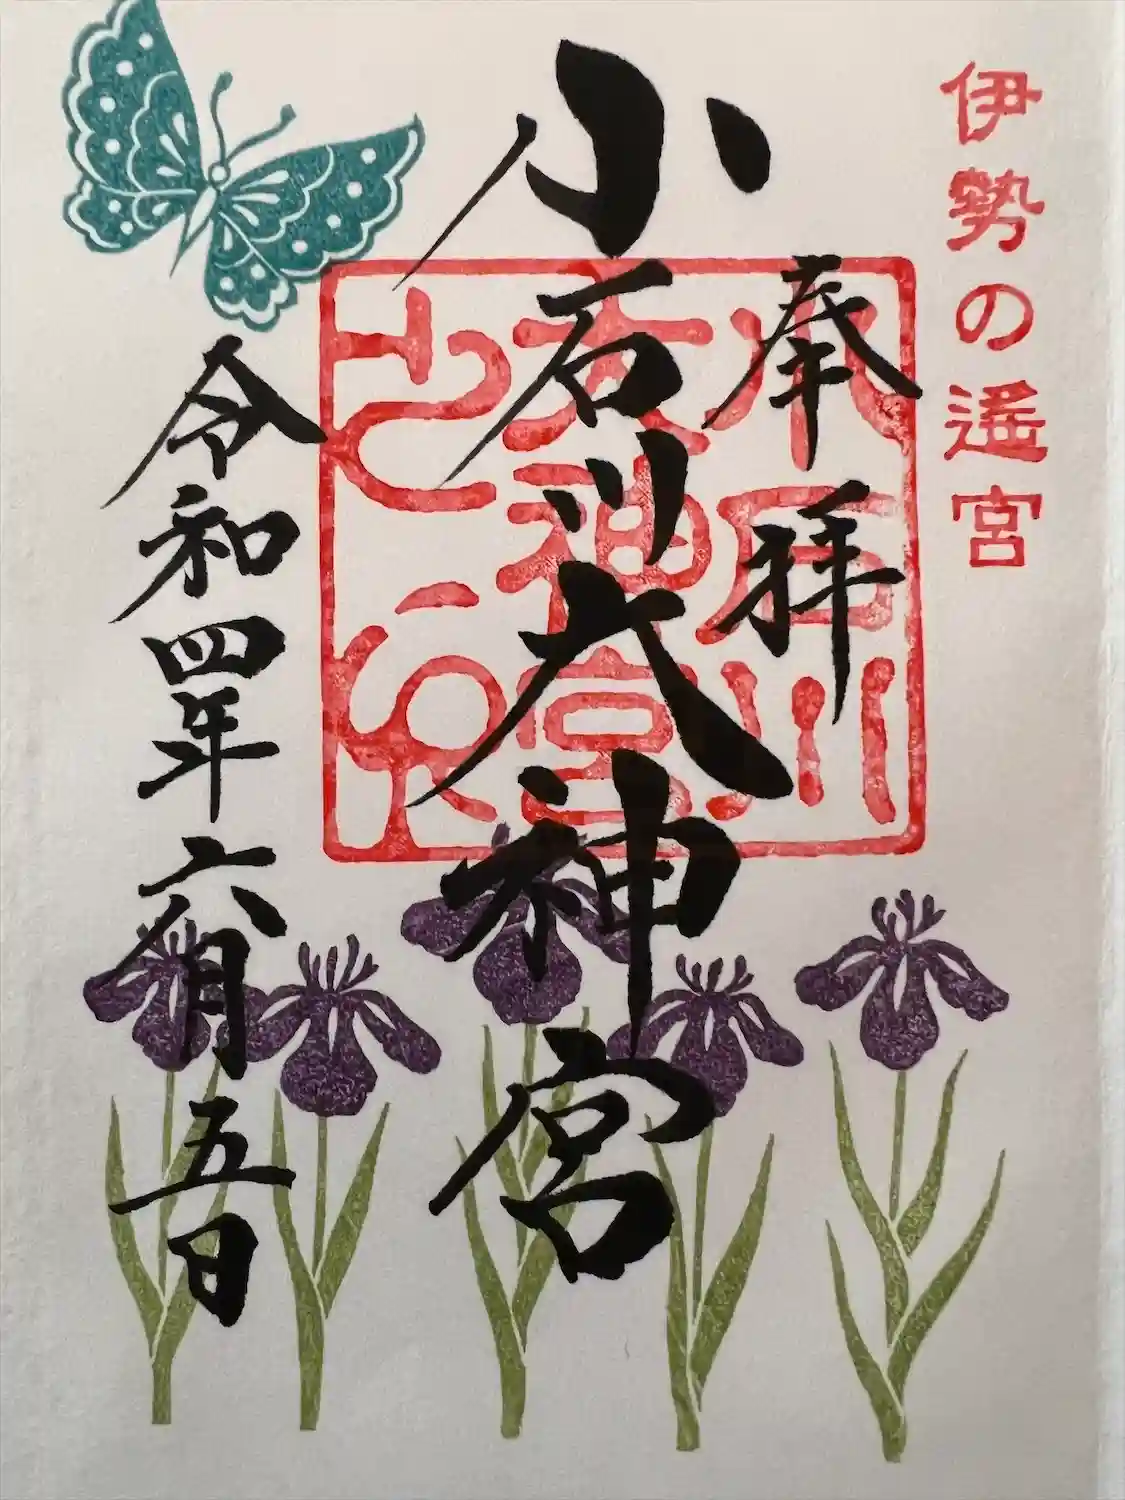 伊勢の遥宮
奉拝
小石川大神宮
小石川
大神宮
之印
令和四年六月五日